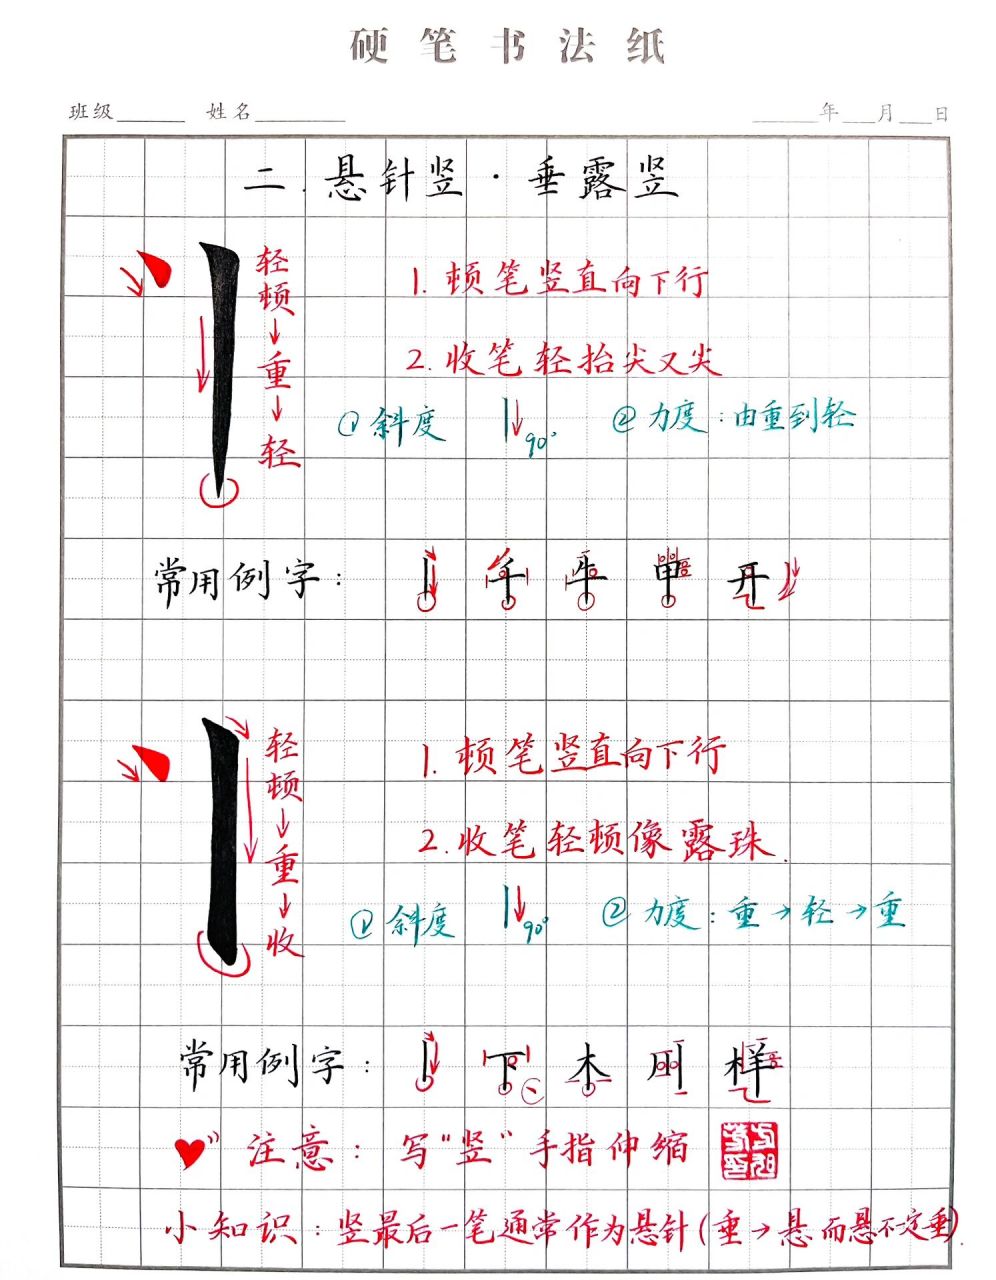 硬笔书法纸
班级 姓名 年 月 日
二.悬针竖·垂露竖
轻顿→重→轻
1.顿笔竖直向下行
2.收笔轻抬尖又尖
①斜度 90° ②力度:由重到轻
常用例字: 千 平 申 开
轻顿→重→收
1.顿笔竖直向下行
2.收笔轻顿像露珠.
①斜度 90° ②力度:重→轻→重
常用例字: 下 木 川 样
注意:写"竖"手指伸缩
小知识:竖最后一笔通常作为悬针(垂→悬而悬不定垂).